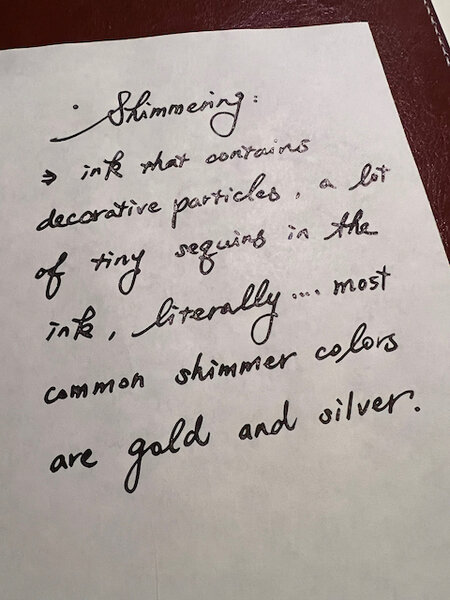 • Shimmering:
⇒ ink that contains
decorative particles, a lot
of tiny sequins in the
ink, literally.... most
common shimmer colors
are gold and silver.